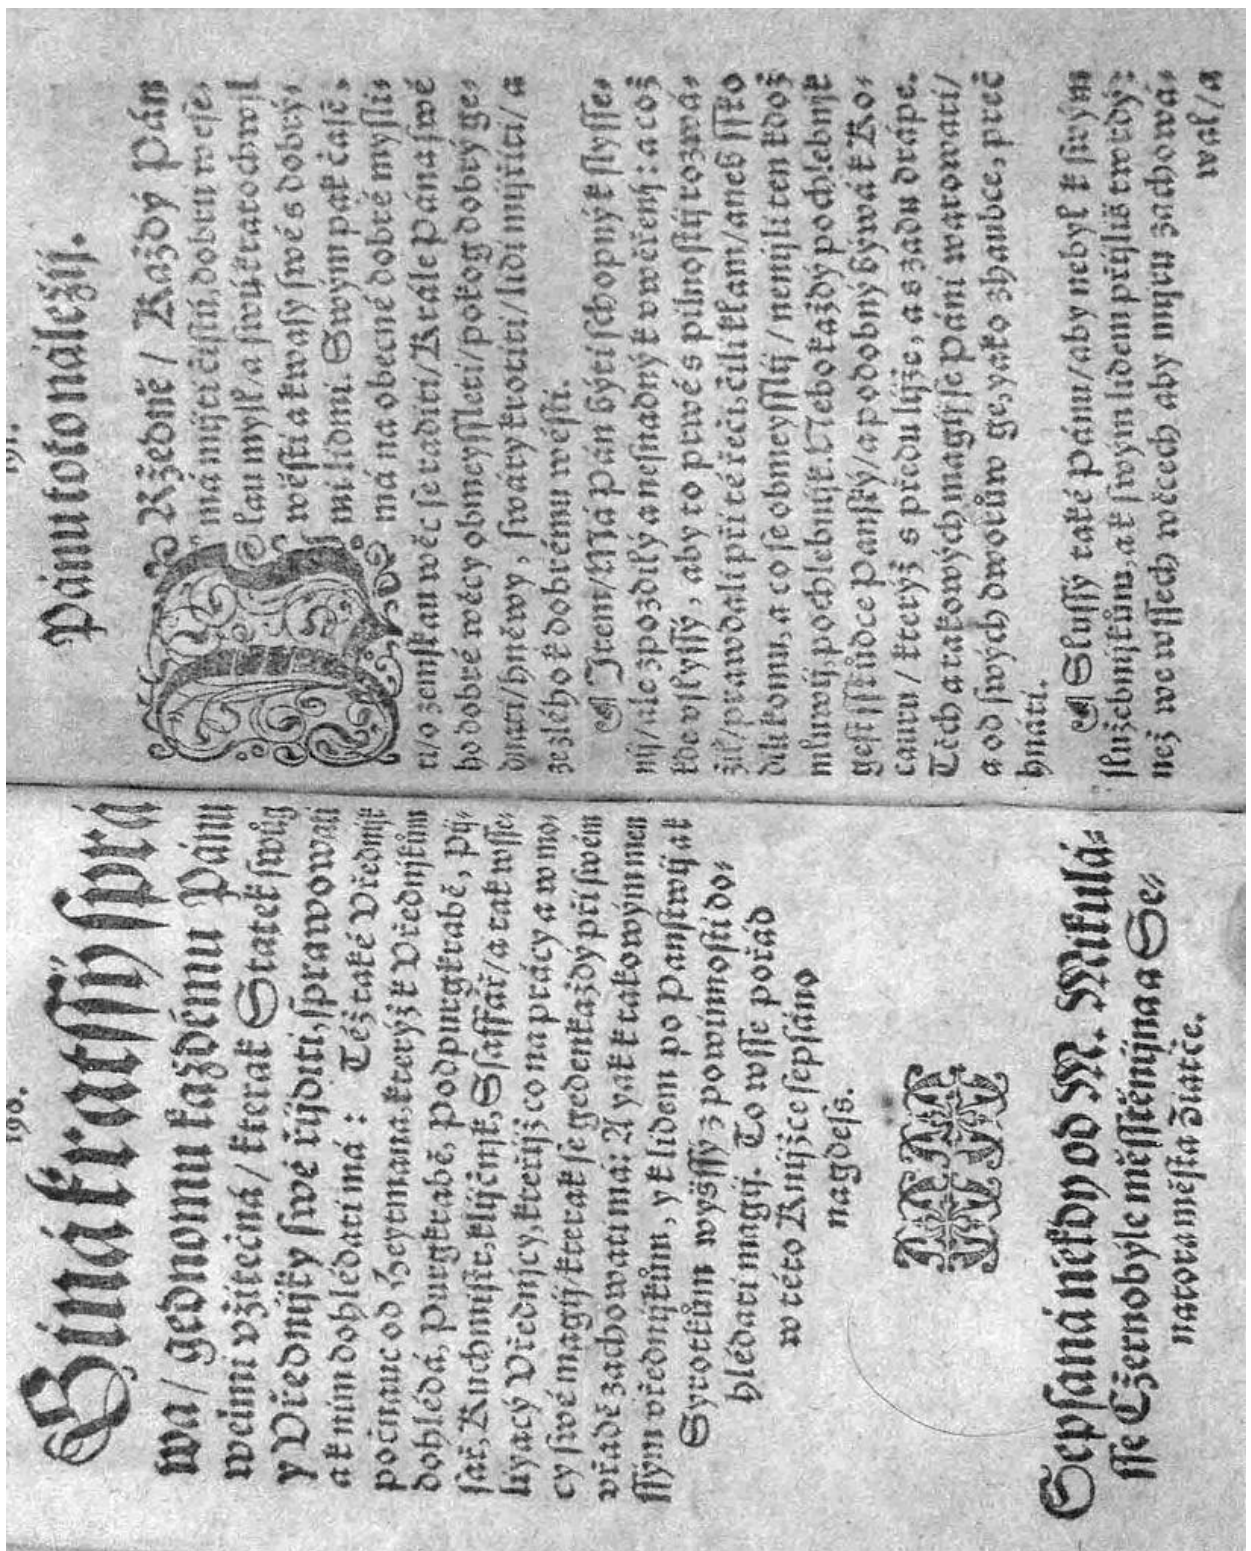 190.
Giná kratssy sprá
wa / gednomu každému Pánu
welmi vžitečná / kterak Statek swůg
y Vřednijky swé řijditi, sprawowati
a k nim dohlédati má: Též také Vřednijk
počnauc od Heytmana, kterýž k Vřednjkům
dohlédá, Purgkrabě, Podpurgkrabě, Pij-
sař, Kuchmistr, kljčnjk, Ssaffář / a tak wsse-
liyacý Vřednjcy, kteřijž co na prácy a w mo-
cy swé magij / kterak se gedenkaždý při swém
vřadě zachowati má: A yak k takowým men
ssým vřednjkům, y k lidem po Panstwij a k
Syrotkům wyšssý z powinnosti do-
hlédati magij. To wsse pořád
w této Knijžce sepsáno
nagdess.
Sepsaná někdy od M. Mikulá-
sse Cžernobýle měsstěnijna a Se-
natora města Žiatče.
191.
Pánu toto náležij.
Ržedně / Každý Pán
má mijti čistú, dobrú wese-
lau mysl / a swú kratochwjl
wésti a kwasy swé s dobrý-
mi lidmi. Swým pak časě,
má na obecné dobré mysli-
ti / o zemskau wěc se raditi / Krále Pána swé
ho dobré wěcy obmeyssleti / pokog dobrý ge-
dnati / hněwy, swáry krotiti / lidi mijřiti / a
ze zlého k dobrému wésti.
Item / Má Pán býti schopný k slysse-
nij / ale zpozdilý a nesnadný k uwěřenij: a což
kde vslyssý, aby to prwé s pilnostij rozwá-
žil / prawda-li při té řeči, čili klam / aneb sstko
dli komu, a co se obmeysslij / nenij-li ten kdož
mluwij, pochlebnijk. Nebo každý pochlebnjk
gest sskůdce Panský / a podobný býwá k Ko-
cauru / kterýž s předu ljže, a s zadu drápe.
Těch a takowých magij se Páni warowati /
a od swých dworůw ge, yako zhaubce, preč
hnáti.
Slussý také Pánu / aby nebyl k swým
služebnjkům, a k swým lidem přjliš twrdý:
než we wssech wěcech aby mjru zachowá-
wal / a